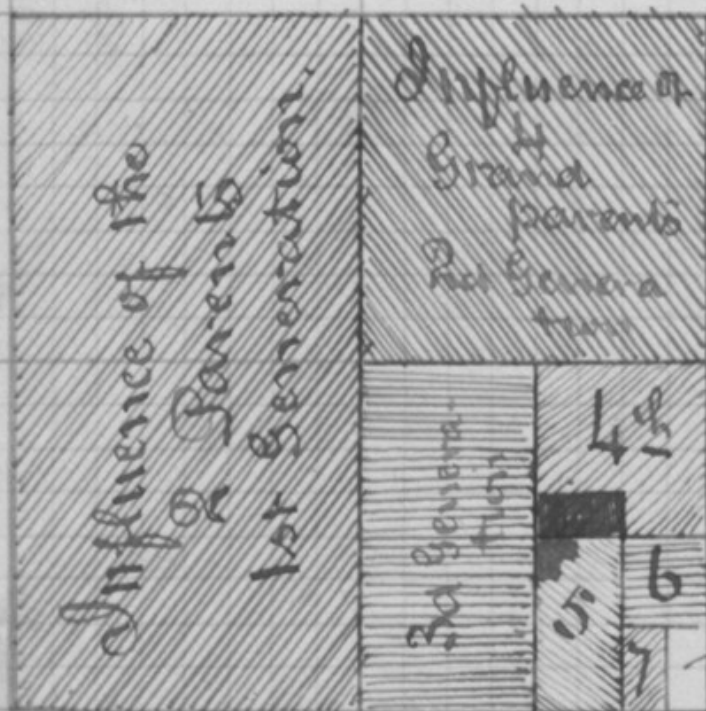 Influence of the
2 Parents
1st Generation.
Influence of
4
Grand
parents
2nd Genera
tion
3d Genera-
tion
4th
5
6
7